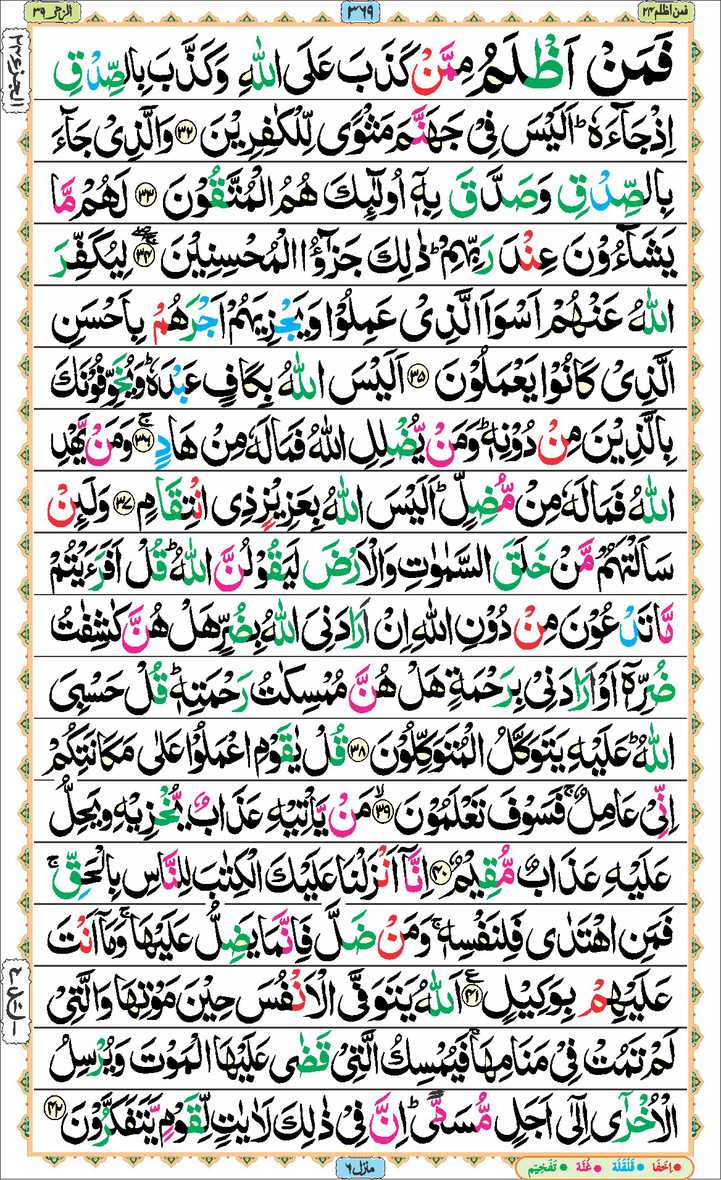 فمن اظلم ۲۴
۳۶۹
الزمر ۳۹
فَمَنْ اَظْلَمُ مِمَّنْ كَذَبَ عَلَى اللّٰهِ وَكَذَّبَ بِالصِّدْقِ
اِذْ جَآءَهٗ ؕ اَلَيْسَ فِىْ جَهَنَّمَ مَثْوًى لِّلْكٰفِرِيْنَ ۳۲ وَالَّذِىْ جَآءَ
بِالصِّدْقِ وَصَدَّقَ بِهٖۤ اُولٰٓئِكَ هُمُ الْمُتَّقُوْنَ ۳۳ لَهُمْ مَّا
يَشَآءُوْنَ عِنْدَ رَبِّهِمْ ؕ ذٰلِكَ جَزٰٓؤُا الْمُحْسِنِيْنَ ۳۴ لِيُكَفِّرَ
اللّٰهُ عَنْهُمْ اَسْوَاَ الَّذِىْ عَمِلُوْا وَيَجْزِيَهُمْ اَجْرَهُمْ بِاَحْسَنِ
الَّذِىْ كَانُوْا يَعْمَلُوْنَ ۳۵ اَلَيْسَ اللّٰهُ بِكَافٍ عَبْدَهٗ ؕ وَيُخَوِّفُوْنَكَ
بِالَّذِيْنَ مِنْ دُوْنِهٖ ؕ وَمَنْ يُّضْلِلِ اللّٰهُ فَمَا لَهٗ مِنْ هَادٍ ۚ ۳۶ وَمَنْ يَّهْدِ
اللّٰهُ فَمَا لَهٗ مِنْ مُّضِلٍّ ؕ اَلَيْسَ اللّٰهُ بِعَزِيْزٍ ذِى انْتِقَامٍ ۳۷ وَلَئِنْ
سَاَلْتَهُمْ مَّنْ خَلَقَ السَّمٰوٰتِ وَالْاَرْضَ لَيَقُوْلُنَّ اللّٰهُ ؕ قُلْ اَفَرَءَيْتُمْ
مَّا تَدْعُوْنَ مِنْ دُوْنِ اللّٰهِ اِنْ اَرَادَنِىَ اللّٰهُ بِضُرٍّ هَلْ هُنَّ كٰشِفٰتُ
ضُرِّهٖۤ اَوْ اَرَادَنِىْ بِرَحْمَةٍ هَلْ هُنَّ مُمْسِكٰتُ رَحْمَتِهٖ ؕ قُلْ حَسْبِىَ
اللّٰهُ ؕ عَلَيْهِ يَتَوَكَّلُ الْمُتَوَكِّلُوْنَ ۳۸ قُلْ يٰقَوْمِ اعْمَلُوْا عَلٰى مَكَانَتِكُمْ
اِنِّىْ عَامِلٌ ۚ فَسَوْفَ تَعْلَمُوْنَ ۙ ۳۹ مَنْ يَّاْتِيْهِ عَذَابٌ يُّخْزِيْهِ وَيَحِلُّ
عَلَيْهِ عَذَابٌ مُّقِيْمٌ ۴۰ اِنَّاۤ اَنْزَلْنَا عَلَيْكَ الْكِتٰبَ لِلنَّاسِ بِالْحَقِّ ۚ
فَمَنِ اهْتَدٰى فَلِنَفْسِهٖ ۚ وَمَنْ ضَلَّ فَاِنَّمَا يَضِلُّ عَلَيْهَا ۚ وَمَاۤ اَنْتَ
عَلَيْهِمْ بِوَكِيْلٍ ۴۱ اَللّٰهُ يَتَوَفَّى الْاَنْفُسَ حِيْنَ مَوْتِهَا وَالَّتِىْ
لَمْ تَمُتْ فِىْ مَنَامِهَا ۚ فَيُمْسِكُ الَّتِىْ قَضٰى عَلَيْهَا الْمَوْتَ وَيُرْسِلُ
الْاُخْرٰٓى اِلٰٓى اَجَلٍ مُّسَمًّى ؕ اِنَّ فِىْ ذٰلِكَ لَاٰيٰتٍ لِّقَوْمٍ يَّتَفَكَّرُوْنَ ۴۲
منزل ۶
اِخفَا قَلْقَلَة غُنَّة تَفْخِيْم